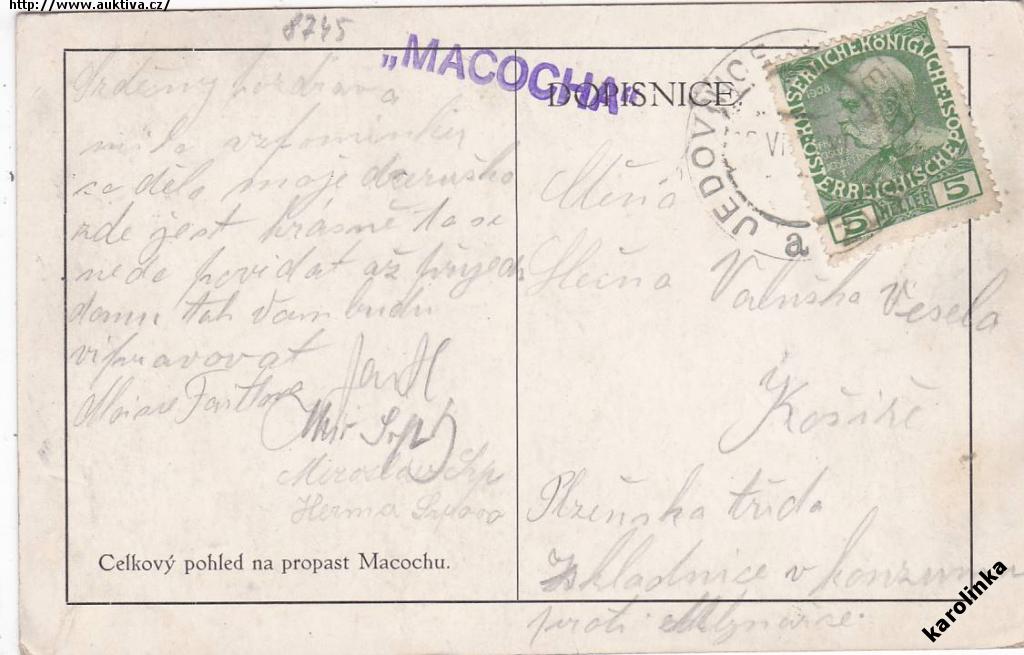 http://www.auktiva.cz/
8745
„MACOCHA“
DOPISNICE
JEDOVNICE
a
KAISERLICHE KÖNIGLICHE
ÖSTERREICHISCHE POST
1908
5 HELLER 5
Srdečný pozdrav a
milá vzpomínku
moje
zde jest krásně to se
nedá povidat až přijedu
domu tak Vam budu
vipravovat
Miroslav Srp
Herma
Celkový pohled na propast Macochu.
Slečna
Valuška Vesela
v Košiře
Plzeňska třida
Skladnice v konzumu
proti
karolinka